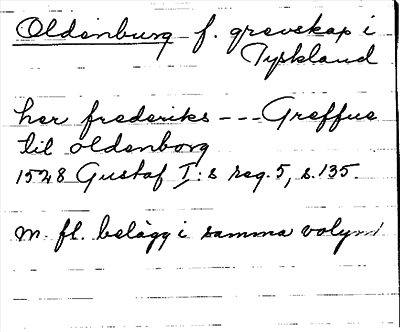 Oldenburg f. grevskap i
Tyskland
her frederiks --- Greffue
til oldenborg
1528 Gustaf I:s reg. 5, s. 135.
m. fl. belägg i samma volym